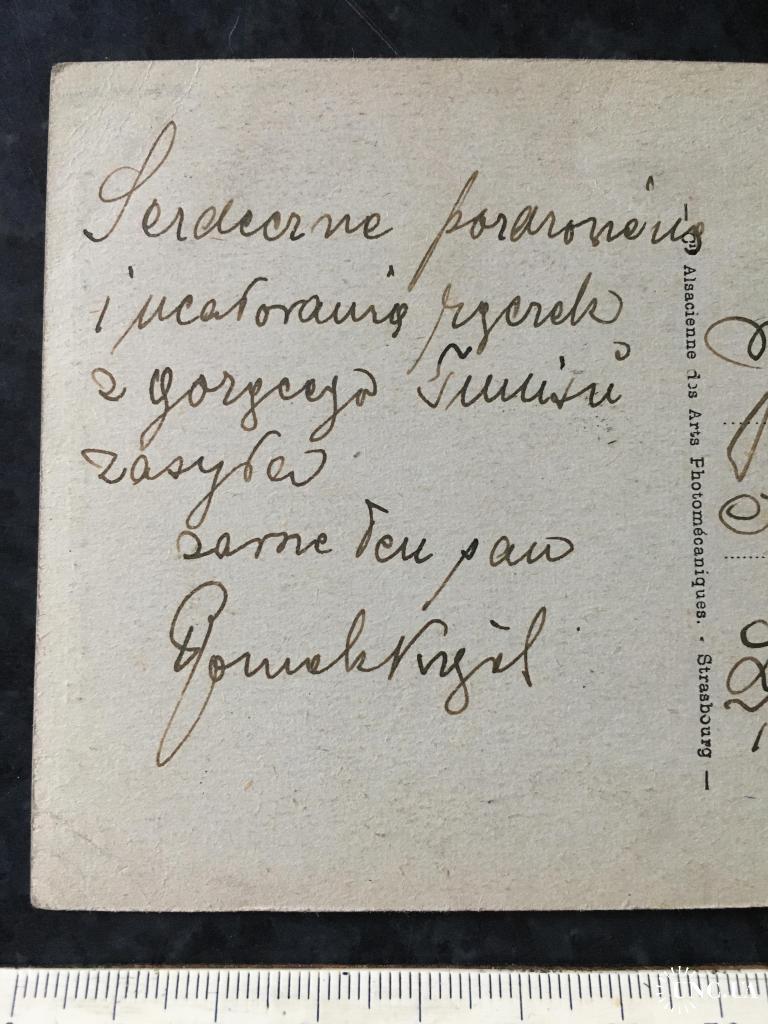 Serdeczne pozdrowienia
i ucałowania rączek
z gorącego Tunisu
zasyła
zawsze ten pan
— Cie Alsacienne des Arts Photomécaniques. - Strasbourg —
UNC.UA